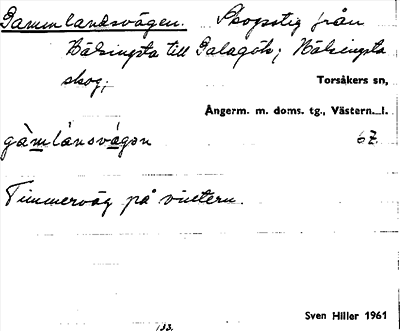 Gammlandsvägen. Skogsstig från
Bälsingsta till Galagöts; Hälsingsta
skog;
Torsåkers sn,
Ångerm. m. doms. tg., Västern. l.
gàmlánsvägən 67
Timmerväg på vintern.
Sven Hiller 1961
133.